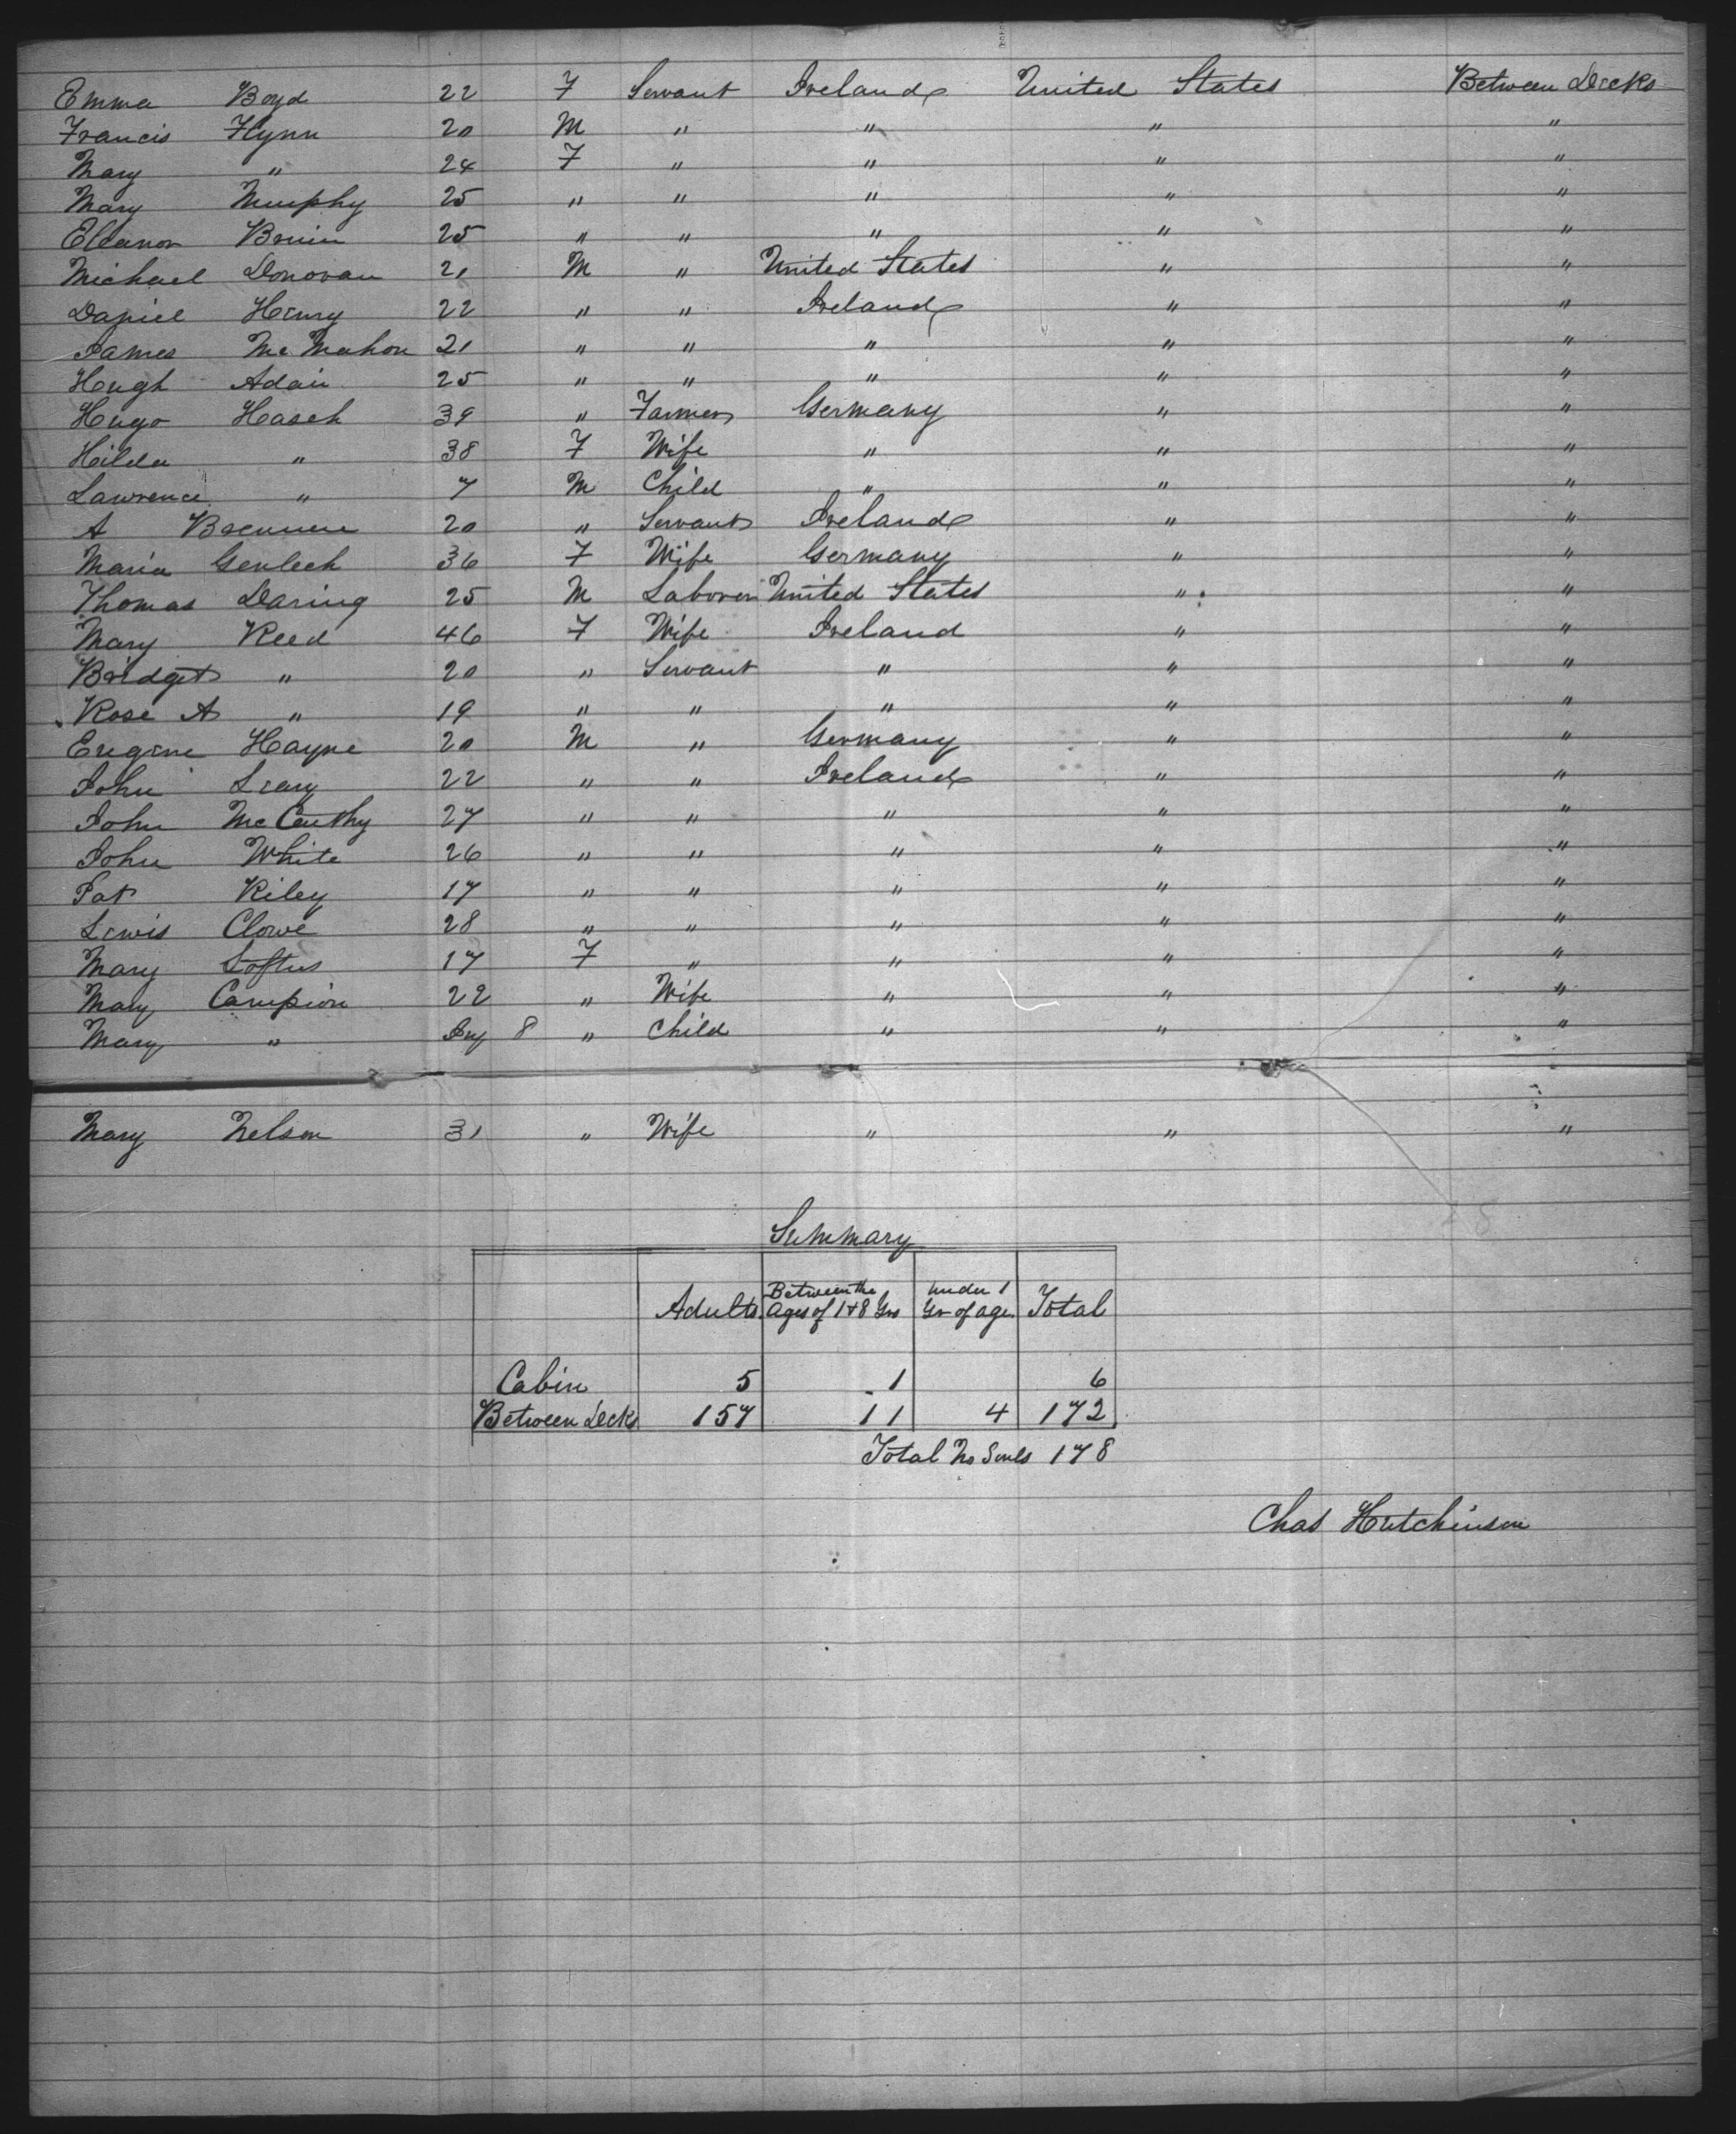 Emma Boyd 22 F Servant Ireland United States Between Decks
Francis Flynn 20 M " " " "
Mary " 24 F " " " "
Mary Murphy 25 " " " " "
Eleanor Bruin 25 " " " " "
Michael Donovan 21 M " United States " "
Daniel Henry 22 " " Ireland " "
James McMahon 21 " " " " "
Hugh Adair 25 " " " " "
Hugo Hasch 39 " Farmer Germany " "
Hilda " 38 F Wife " " "
Lawrence " 7 M Child " " "
A Brennen 20 " Servant Ireland " "
Maria 36 F Wife Germany " "
Thomas Daring 25 M Laborer United States " "
Mary Reed 46 F Wife Ireland " "
Bridget " 20 " Servant " " "
Rose A " 19 " " " " "
Eugene Hayne 20 M " Germany " "
John Leary 22 " " Ireland " "
John McCarthy 27 " " " " "
John White 26 " " " " "
Pat Riley 17 " " " " "
Lewis Clowe 28 " " " " "
Mary Loftus 17 F " " " "
Mary Campion 22 " Wife " " "
Mary " Inf 8 " Child " " "
Mary Nelson 31 " Wife " " "
Summary
Adults Between the ages of 1 & 8 Yrs Under 1 Yr of age Total
Cabin 5 1 6
Between Decks 157 11 4 172
Total No Souls 178
Chas Hutchinson